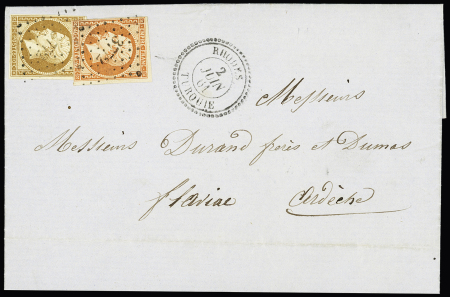 RHODES
2
JUIN
61
TURQUIE
Messieurs
Messieurs Durand frères et Dumas
flaviac Ardèche